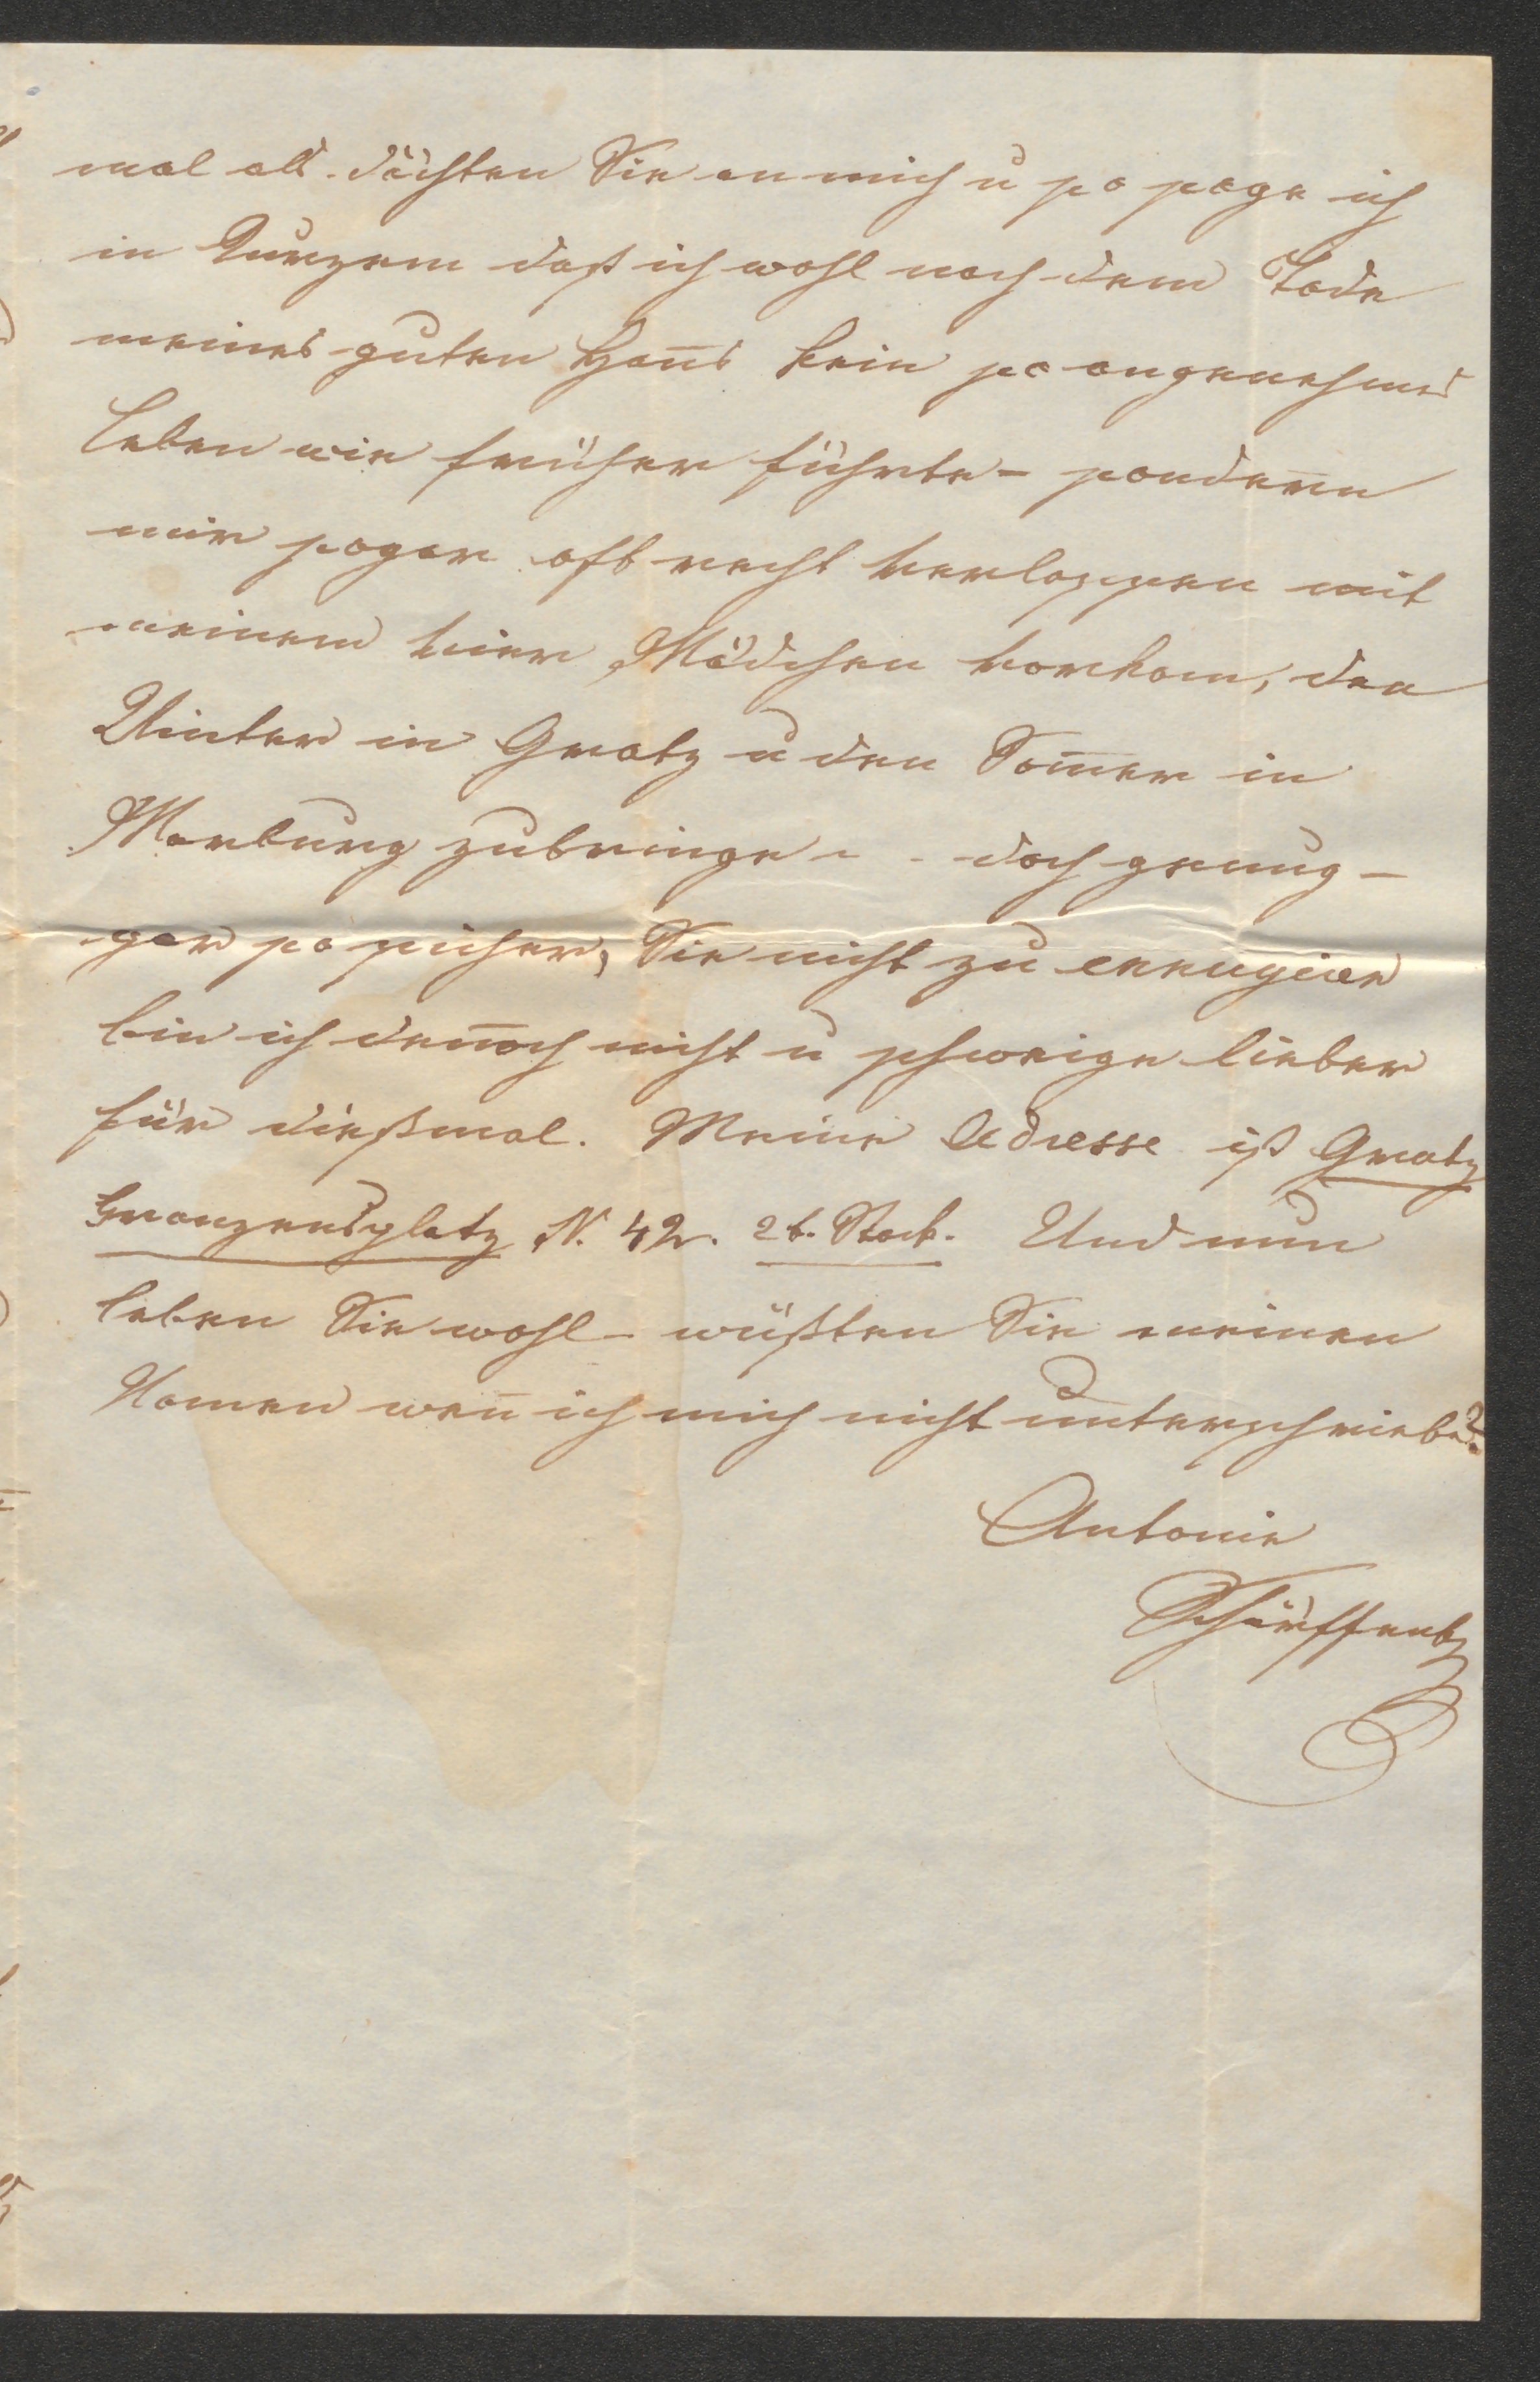 mal als dächten Sie an mich u so sage ich
in Kurzem daß ich wohl nach dem Tode
meines guten Hans̄ kein so angenehmes
Leben wie früher führte – sondern
mir sogar oft recht verlassen mit
meinem vier Mädchen vorkam, den
Winter in Gratz u den Som̄er in
Marburg zubringe – – doch genug –
gar so sicher, Sie nicht zu ennuyiren
bin ich den̄och nicht u schweige lieber
für dießmal. Meine Adresse ist Gratz
Franzensplatz N. 42. 2t. Stock. Und nun
leben Sie wohl – wüßten Sie meinen
Namen wen̄ ich mich nicht unterschriebe?
Antonie
Schärffenb